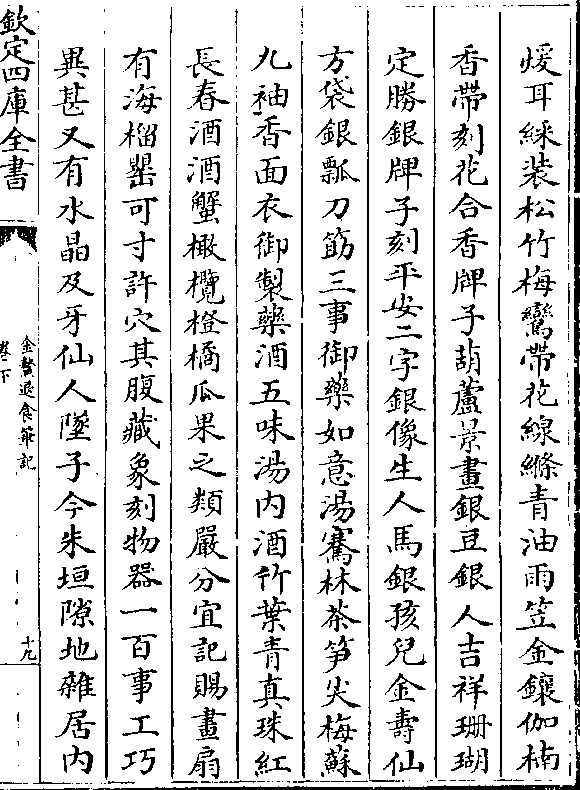 煖耳綵装松竹梅鸞帶花線縧青油雨笠金鑲伽楠
香帶刻花合香牌子葫蘆景畫銀豆銀人吉祥珊瑚
定勝銀牌子刻平安二字銀像生人馬銀孩兒金壽仙
方袋銀瓢刀筯三事御藥如意湯騫林茶笋尖梅蘇
丸袖香面衣御製藥酒五味湯内酒竹葉青真珠紅
長春酒酒蟹橄欖橙橘瓜果之類嚴分宜記賜畫扇
有海榴罌可寸許穴其腹藏象刻物器一百事工巧
異甚又有水晶及牙仙人墜子今朱垣隙地雜居内
欽定四庫全書
金鰲退食筆記
卷下
十九